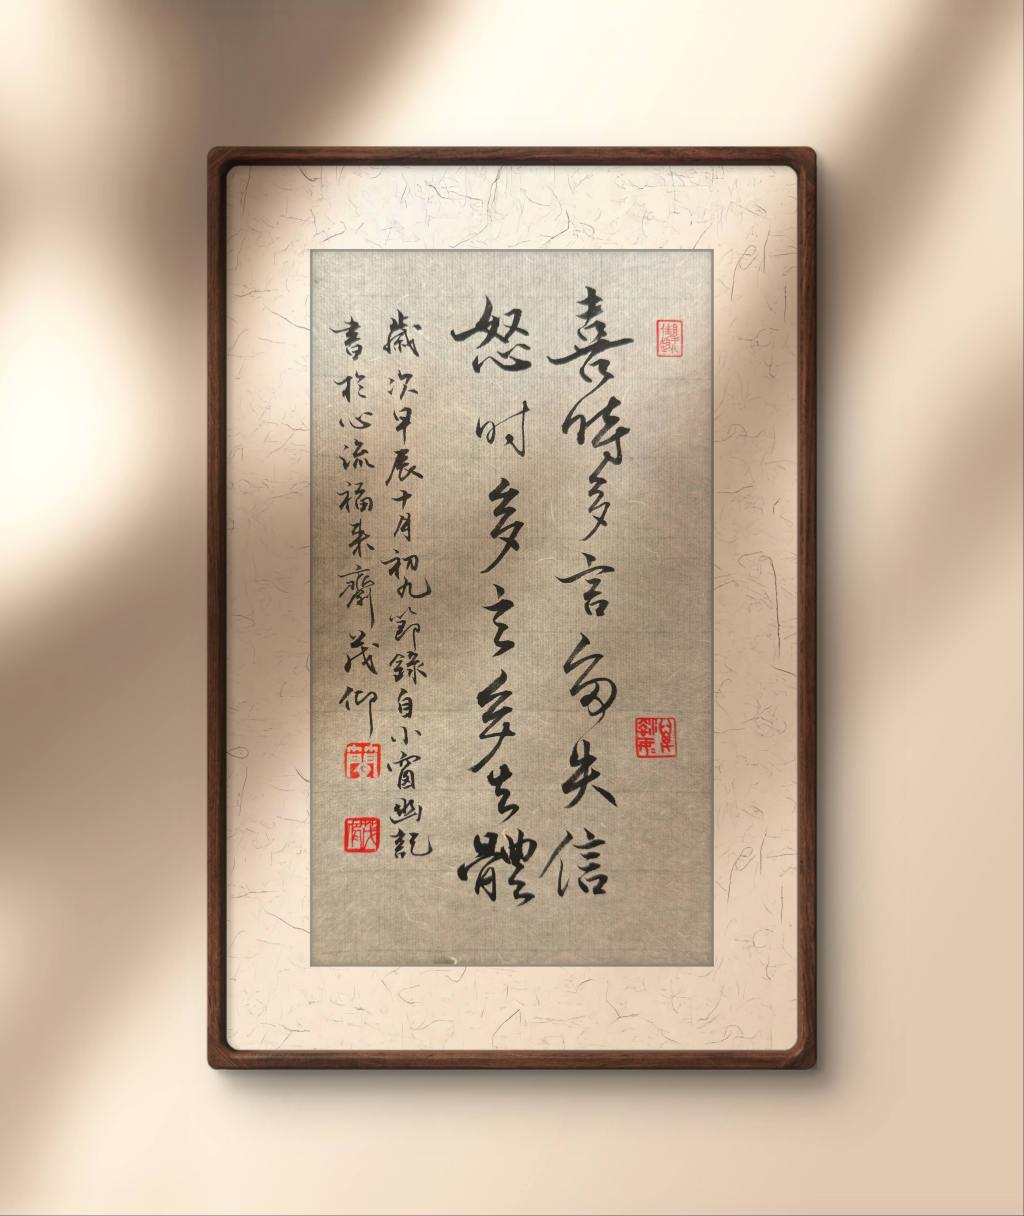 喜時多言多失信
怒时多言多失體
歲次甲辰十月初九節錄自小窗幽記
書於心流福来齋茂仰